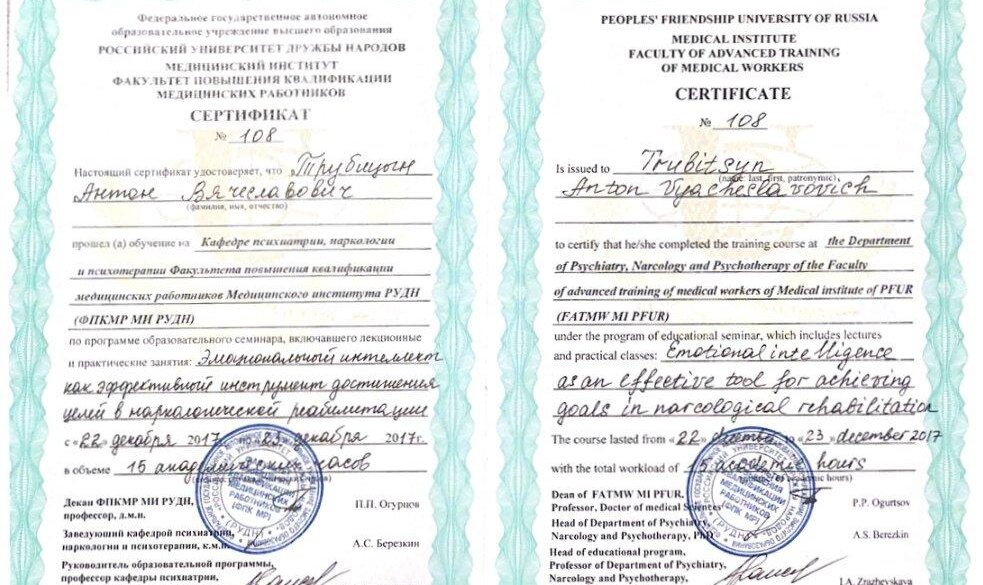 Федеральное государственное автономное
образовательное учреждение высшего образования
РОССИЙСКИЙ УНИВЕРСИТЕТ ДРУЖБЫ НАРОДОВ
МЕДИЦИНСКИЙ ИНСТИТУТ
ФАКУЛЬТЕТ ПОВЫШЕНИЯ КВАЛИФИКАЦИИ
МЕДИЦИНСКИХ РАБОТНИКОВ
СЕРТИФИКАТ
№ 108
Настоящий сертификат удостоверяет, что Трубицын
Антон Вячеславович
(фамилия, имя, отчество)
прошел (а) обучение на Кафедре психиатрии, наркологии
и психотерапии Факультета повышения квалификации
медицинских работников Медицинского института РУДН
(ФПКМР МИ РУДН)
по программе образовательного семинара, включавшего лекционные
и практические занятия: Эмоциональный интеллект
как эффективный инструмент достижения
целей в наркологической реабилитации
с «22» декабря 2017 23 декабря 2017г.
в объеме 15 академических часов
Декан ФПКМР МИ РУДН,
профессор, д.м.н. П.П. Огурцов
Заведующий кафедрой психиатрии,
наркологии и психотерапии, к.м.н. А.С. Березкин
Руководитель образовательной программы,
профессор кафедры психиатрии,
PEOPLES' FRIENDSHIP UNIVERSITY OF RUSSIA
MEDICAL INSTITUTE
FACULTY OF ADVANCED TRAINING
OF MEDICAL WORKERS
CERTIFICATE
№ 108
Is issued to Trubitsyn
(name: last, first, patronymic)
Anton Vyacheslavovich
to certify that he/she completed the training course at the Department
of Psychiatry, Narcology and Psychotherapy of the Faculty
of advanced training of medical workers of Medical institute of PFUR
(FATMW MI PFUR)
under the program of educational seminar, which includes lectures
and practical classes: Emotional intelligence
as an effective tool for achieving
goals in narcological rehabilitation
The course lasted from «22» december to «23» december 2017
with the total workload of 15 academic hours
Dean of FATMW MI PFUR,
Professor, Doctor of medical Sciences P.P. Ogurtsov
Head of Department of Psychiatry,
Narcology and Psychotherapy, PhD A.S. Berezkin
Head of educational program,
Professor of Department of Psychiatry,
Narcology and Psychotherapy, I.A. Zrazhevskaya